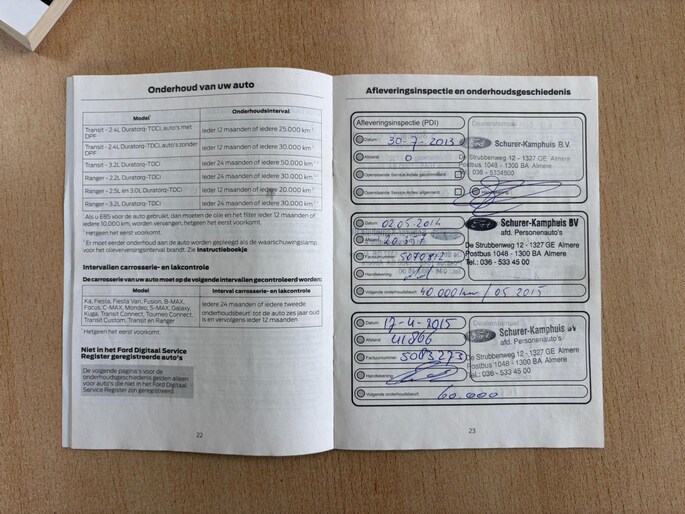 Onderhoud van uw auto
Model¹
Onderhoudsinterval
Transit - 2.4L Duratorq-TDCi, auto's met DPF
Ieder 12 maanden of iedere 25.000 km.
Transit - 2.4L Duratorq-TDCi, auto's zonder DPF
Ieder 12 maanden of iedere 30.000 km.
Transit - 3.2L Duratorq-TDCi
Ieder 24 maanden of iedere 50.000 km.
Ranger - 2.2L Duratorq-TDCi
Ieder 24 maanden of iedere 30.000 km.
Ranger - 2.5L en 3.0L Duratorq-TDCi
Ieder 12 maanden of iedere 20.000 km
Ranger - 3.2L Duratorq-TDCi
Ieder 24 maanden of iedere 30.000 km.
Als u E85 voor de auto gebruikt, dan moeten de olie en het filter ieder 12 maanden of
iedere 10.000 km, worden vervangen, hetgeen het eerst voorkomt.
Hetgeen het eerst voorkomt.
Er moet eerder onderhoud aan de auto worden gepleegd als de waarschuwingslamp
voor het olieverversingsinterval brandt. Zie Instructieboekje.
Intervallen carrosserie- en lakcontrole
De carrosserie van uw auto moet op de volgende intervallen gecontroleerd worden:
Model
Interval carrosserie- en lakcontrole
Ka, Fiesta, Fiesta Van, Fusion, B-MAX,
Focus, C-MAX, Mondeo, S-MAX, Galaxy,
Kuga, Transit Connect, Tourneo Connect,
Transit Custom, Transit en Ranger
Iedere 24 maanden of iedere tweede
onderhoudsbeurt tot de auto zes jaar oud
is en vervolgens ieder 12 maanden
Hetgeen het eerst voorkomt.
Niet in het Ford Digitaal Service
Register geregistreerde auto's
De volgende pagina's voor de
onderhoudsgeschiedenis gelden alleen
voor auto's die niet in het Ford Digitaal
Service Register zijn geregistreerd.
22
Afleveringsinspectie en onderhoudsgeschiedenis
Afleveringsinspectie (PDI)
Datum 30-7-2013
Afstand 0
Dealerstempel
Ford Schurer-Kamphuis B.V.
De Strubbenweg 12 - 1327 GE Almere
Postbus 1048 - 1300 BA Almere
Tel.: 036 - 5334500
Datum 02.05.2014
Factuurnummer 5070812
Handtekening
Volgende onderhoudsbeurt 40.000 km / 05 2015
Schurer-Kamphuis BV
afd. Personenauto's
De Strubbenweg 12 - 1327 GE Almere
Postbus 1048 - 1300 BA Almere
Tel.: 036 - 533 45 00
Datum 17-4-2015
Afstand 41866
Factuurnummer 5083273
Handtekening
Volgende onderhoudsbeurt 60.000
Dealerstempel
Schurer-Kamphuis BV
afd. Personenauto's
De Strubbenweg 12 - 1327 GE Almere
Postbus 1048 - 1300 BA Almere
Tel.: 036 - 533 45 00
23